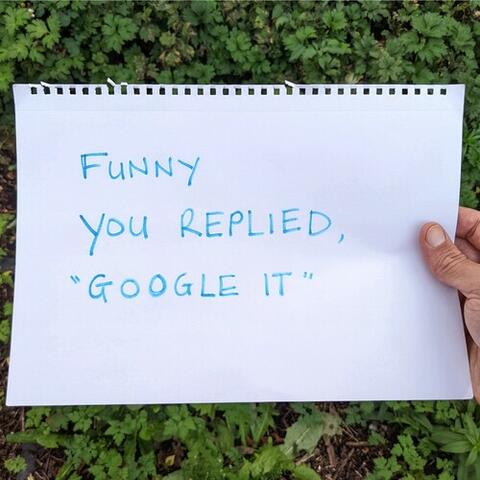 FUNNY
YOU REPLIED,
"GOOGLE IT"